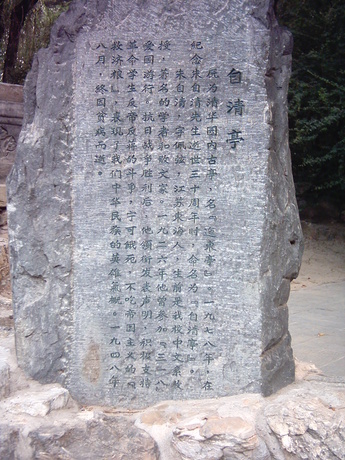 自清亭
原为清华园内古亭，名『迤东亭』。一九七八年，在
纪念朱自清先生逝世三十周年时，命名为『自清亭』。
朱自清，字佩弦，江苏东海人，生前是我校中文系教
授，著名的学者和散文家。一九二六年他曾参加『三·一八』
爱国游行。抗日战争胜利后，他领衔发表声明，积极支持
革命学生反帝反蒋的斗争，宁可饿死，不吃帝国主义的『
救济粮』，表现了我们中华民族的英雄气概。一九四八年
八月，终因贫病而逝。